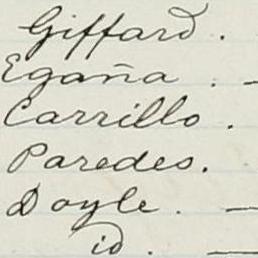 Giffard.
Egaña. —
Carrillo.
Paredes.
Doyle. —
id. —